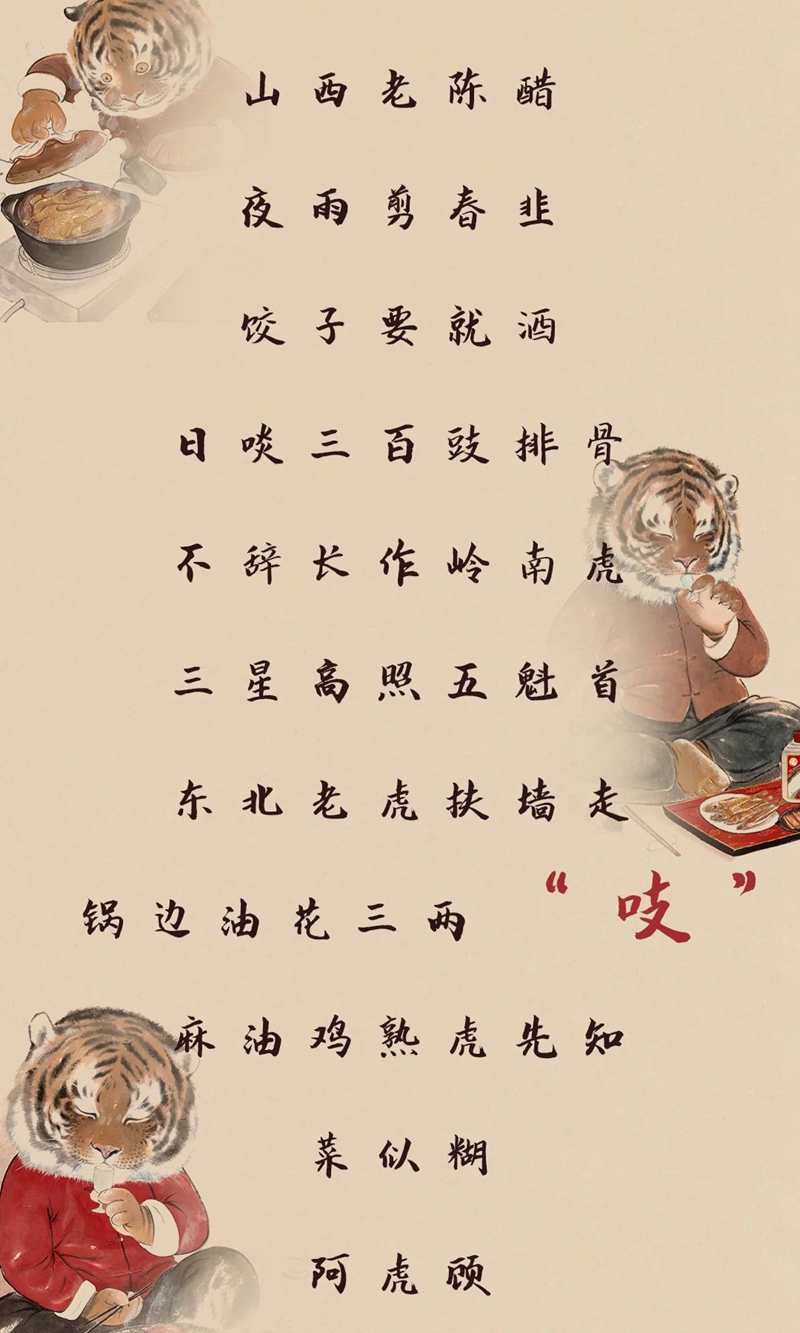 山西老陈醋
夜雨剪春韭
饺子要就酒
日啖三百豉排骨
不辞长作岭南虎
三星高照五魁首
东北老虎扶墙走
锅边油花三两“吱”
麻油鸡熟虎先知
菜似糊
阿虎顾